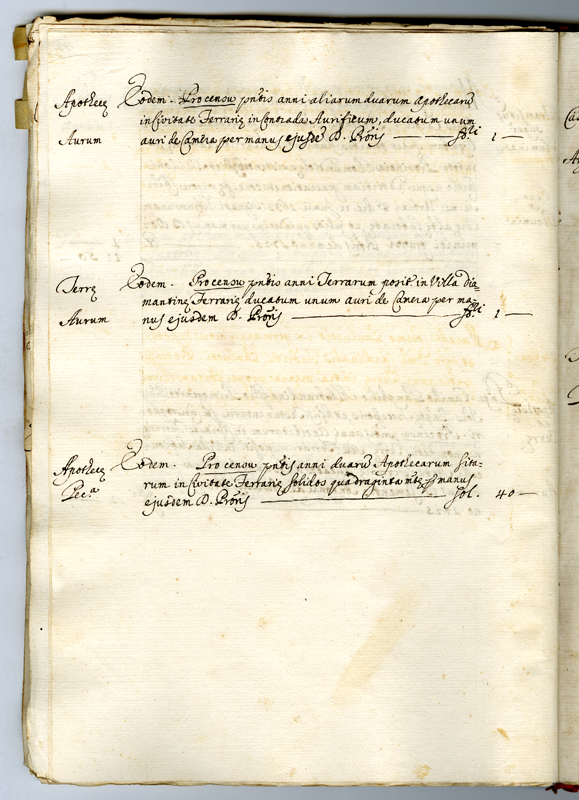 Apothecę Eodem. Pro censu pñtis anni aliarum duarum Apothecarũ
in Civitate Ferrarię in Contrada Aurificum, ducatum unum
Aurum auri de Camera per manus ejusdẽ D. Proris 1
Terrę Eodem. Pro censu pñtis anni Terrarum posit. in Villa Dia-
mantinę Ferrarię ducatum unum auri de Camera per ma-
Aurum nus ejusdem D. Proris 1
Apothecę Eodem. Pro censu pñtis anni duarũ Apothecarum sita-
Peca rum in Civitate Ferrarię solidos quadraginta manus
ejusdem D. Proris sol. 40